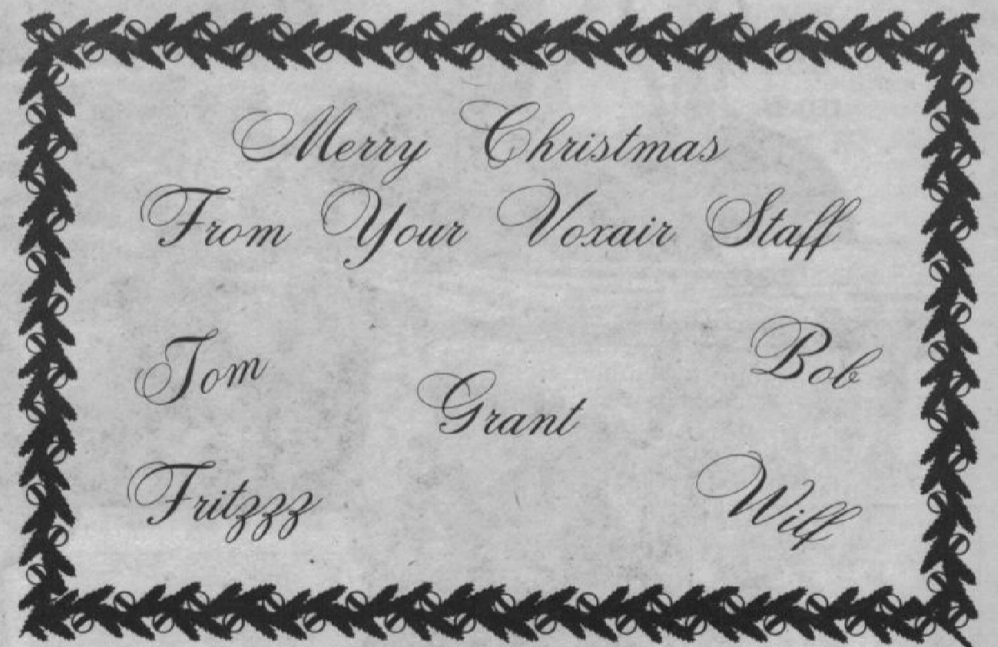 Merry Christmas
From Your Voxair Staff
Tom
Bob
Grant
Fritzzz
Wilf